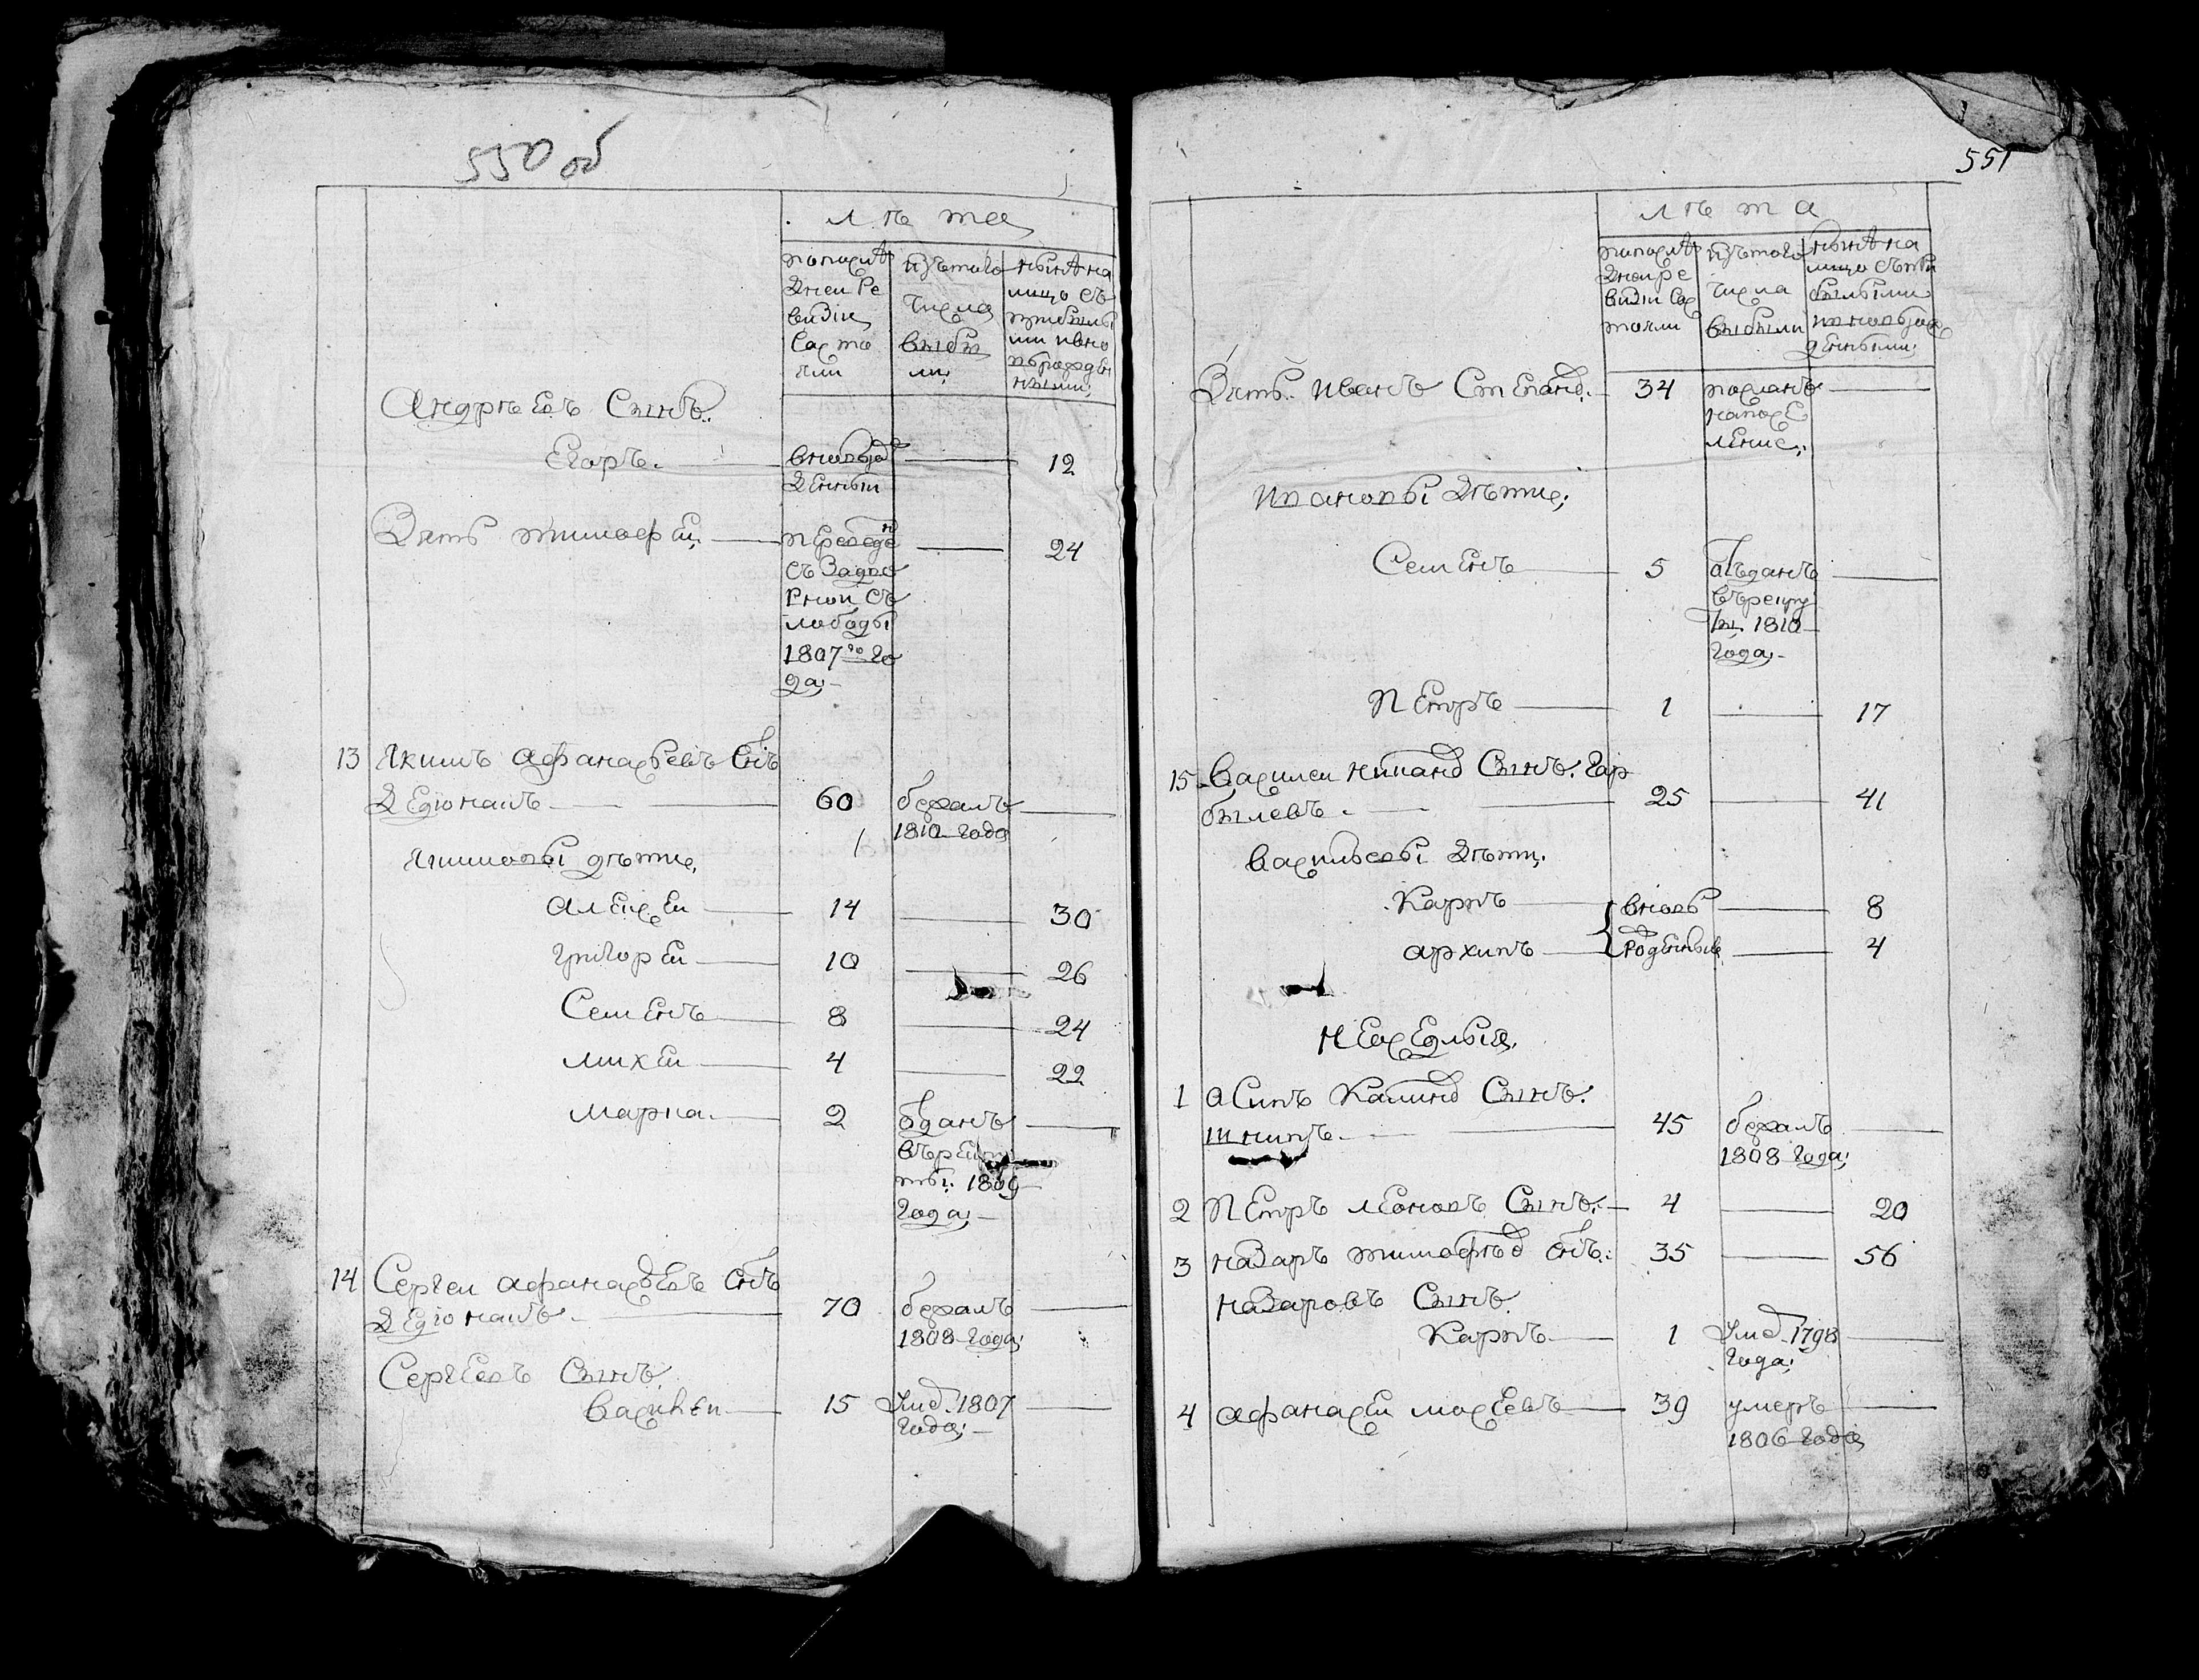 550 об
лѣта
по послѣ
дней ре
визіи
состо
яли
изътого
числа
выбы
ли
нынѣ на
лицо съ
прибылы
ми и вно
въ рожден
ными
Андрѣевъ Сынъ
Егоръ
вновьрож
денный
12
Зять тимофей
переведен
съ Задне
с
лободы
1807го го
да
24
13 Якимъ афанасьевъ Сынъ
60 бежалъ
1810 года
Якимовы дѣти
алексей 14 30
григорей 10 26
Семенъ 8 24
михей 4 22
марка 2 отданъ
въ рекру
ты 1809
года
14 Сергей афанасьевъ Сынъ
70 бежалъ
1808 года
Сергеевъ Сынъ
Василей 15 Умер 1807
года
551
лѣта
по послѣ
дней ре
визіи сос
тояли
изътого
числа
выбыли
нынѣ на
лицо съпри
былыми
и вновьрож
денными
Зять иванъ Степанов 34 посланъ
на посе
ление
ивановы дѣти
Семенъ 5 отъданъ
въ рекру
ты 1810
года
Петръ 1 17
15 Василей Сынъ гор
былевъ 25 41
васильевы дѣти
Карпъ вновь 8
архипъ рожденныя 4
1 Осипъ Калинов Сынъ
45 бежалъ
1808 года
2 Петръ леоновъ Сынъ 4 20
3 назаръ тимофѣев Сынъ 35 56
назаровъ Сынъ
Карпъ 1 Умер 1798
года
4 афанасей мосеевъ 39 умеръ
1806 года